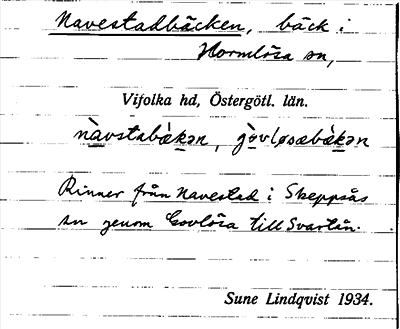 Navestadbäcken, bäck i
Normlösa sn,
Vifolka hd, Östergötl. län.
nàvstabä̀kən, gò̀vløsæbä̀kən
Rinner från Navestad i Skeppsås
sn genom Govlösa till Svartån.
Sune Lindqvist 1934.